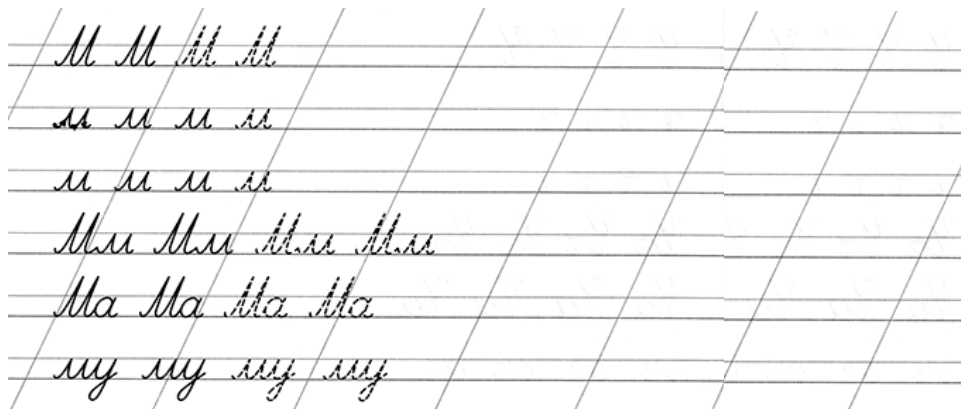 М М М М
м м м м
м м м м
Мм Мм Мм Мм
Ма Ма Ма Ма
му му му му